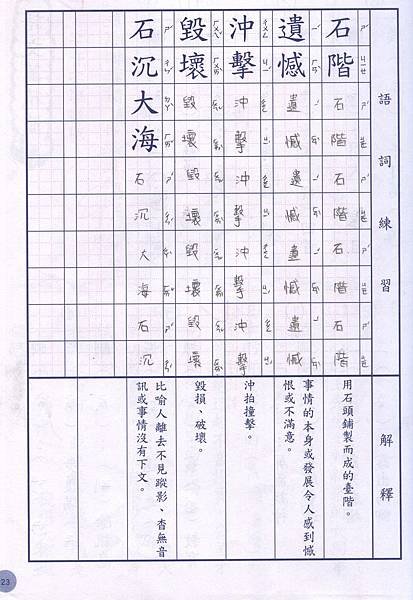 語詞練習
解釋
石階
石階石階石階石階
用石頭鋪製而成的臺階。
遺憾
遺憾遺憾遺憾遺憾
事情的本身或發展令人感到憾
恨或不滿意。
沖擊
沖擊沖擊沖擊沖擊
沖拍撞擊。
毀壞
毀壞毀壞毀壞毀壞
毀損、破壞。
石沉大海
石沉大海石沉
比喻人離去不見蹤影、杳無音
訊或事情沒有下文。
23